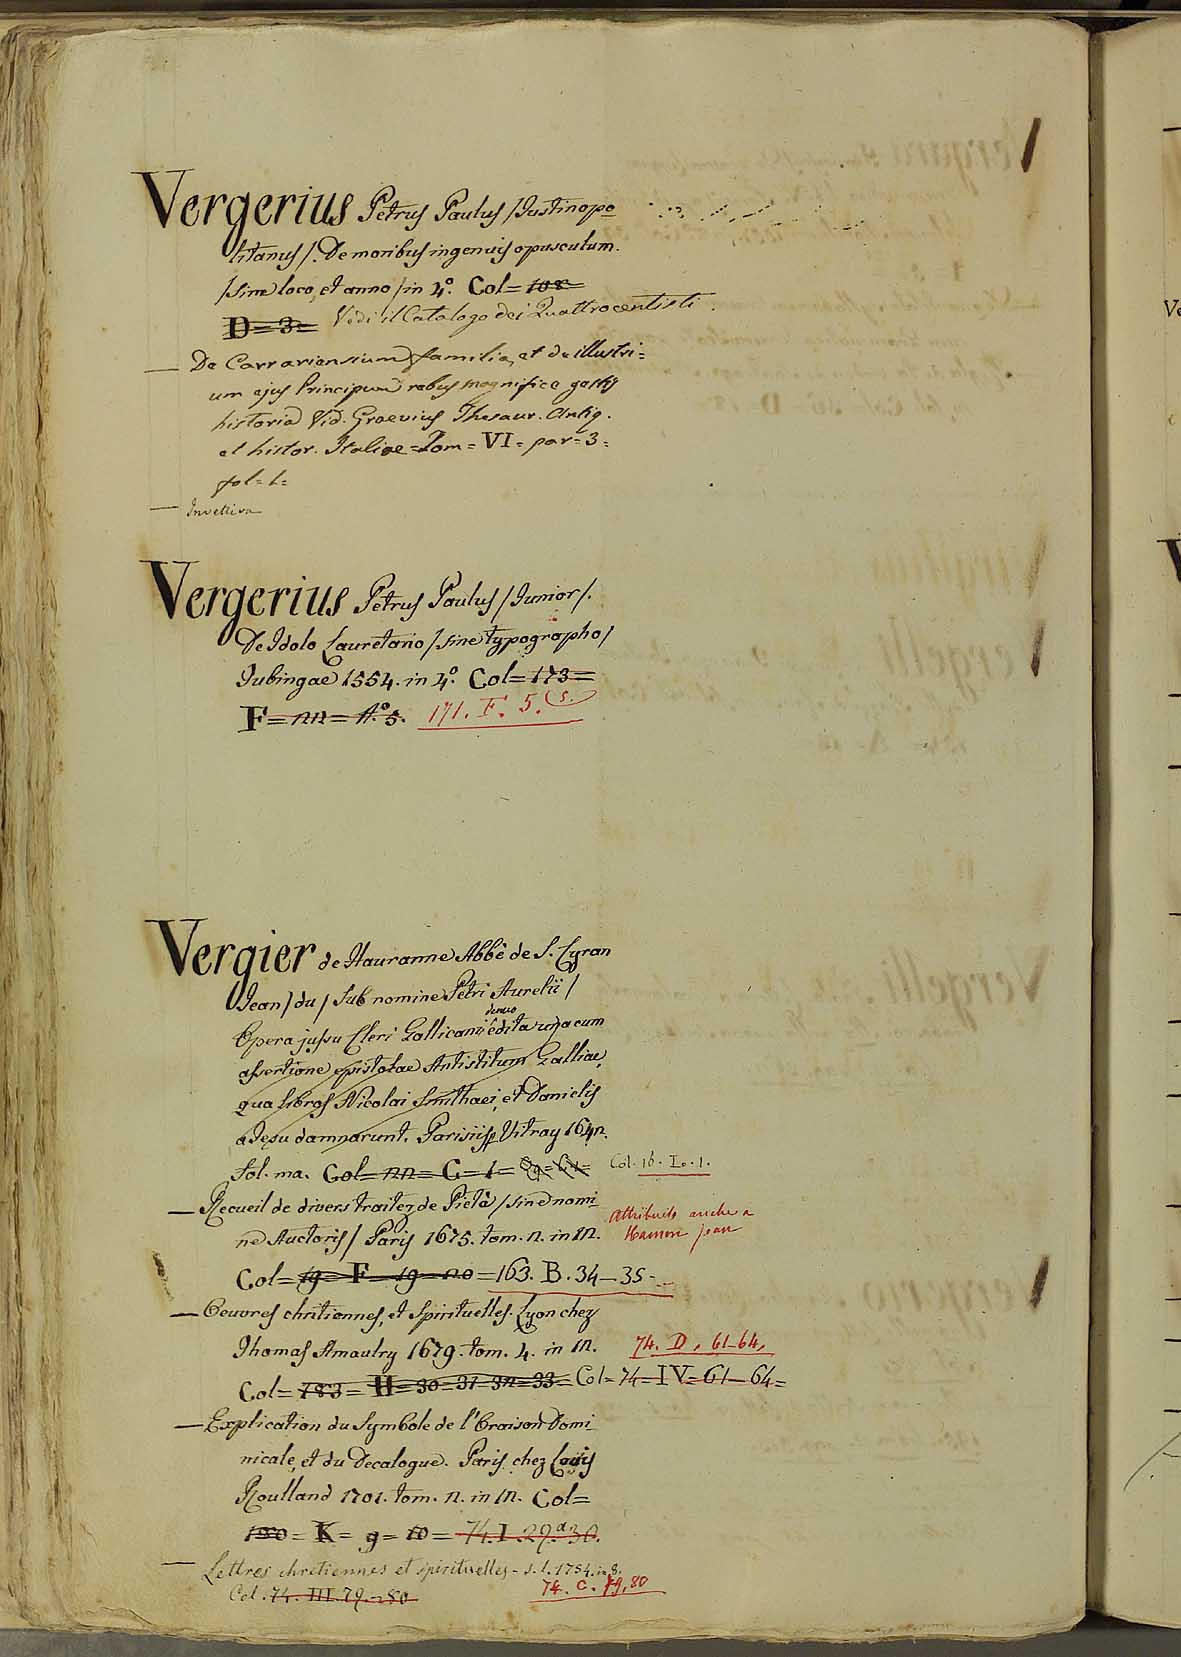 Vergerius Petrus Paulus /Justinopo
litanus/. De moribus ingenuis opusculum.
/sine loco, et anno/ in 4.° Col=108=
D=3= Vedi il Catalogo dei Quattrocentisti.
— De Carrariensium familia, et de illustri=
um ejus Principum rebus magnifice gestis
historia Vid. Graevius Thesaur. Antiq.
et histor. Italiae=Tom=VI=par=3=
fol=1=
— Invettiva
Vergerius Petrus Paulus /Junior/.
De Idolo Lauretano /sine typographo/
Tubingae 1554. in 4.° Col=173=
F=nn=A.°5. 171. F. 5. (5.)
Vergier de Hauranne Abbé de S. Cyran
Jean /du/ sub nomine Petri Aurelii/
Opera jussu Cleri Gallicani denuo edita una cum
assertione epistolae Antistitum Galliae,
qua libros Nicolai Smithaei, et Danielis
a Jesu damnarunt. Parisiis Vitray 164n.
fol. ma. Col=nn=C=1= Col. 16. I. 1.
— Recueil de divers traitez de Pietà /sine nomi
ne Auctoris/ Paris 1675. tom. n. in 1n. Attribuito anche a
Hamon jean
Col=19=F=19=n0=163. B. 34—35—
— Oeuvres chritiennes, et spirituelles. Lyon chez
Thomas Amaulry 1679. tom. 4. in 1n. 74. D. 61-64,
Col=183=H=30=31=3n=33=Col=74=IV=61—64=
— Explication du Symbole de l'Oraison Domi
nicale, et du Decalogue. Paris chez Loüis
Roulland 1701. tom. n. in 1n. Col=
=K=9=10=74. I. 29. a 30.
— Lettres chretiennes et spirituelles - s. l. 1754. in 8.
Col. 74. III. 79.-80 74. C. 79, 80